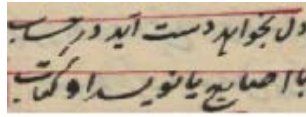 دل بخواهد دست آید در حساب
با اصابیع یا نویسد او کتاب